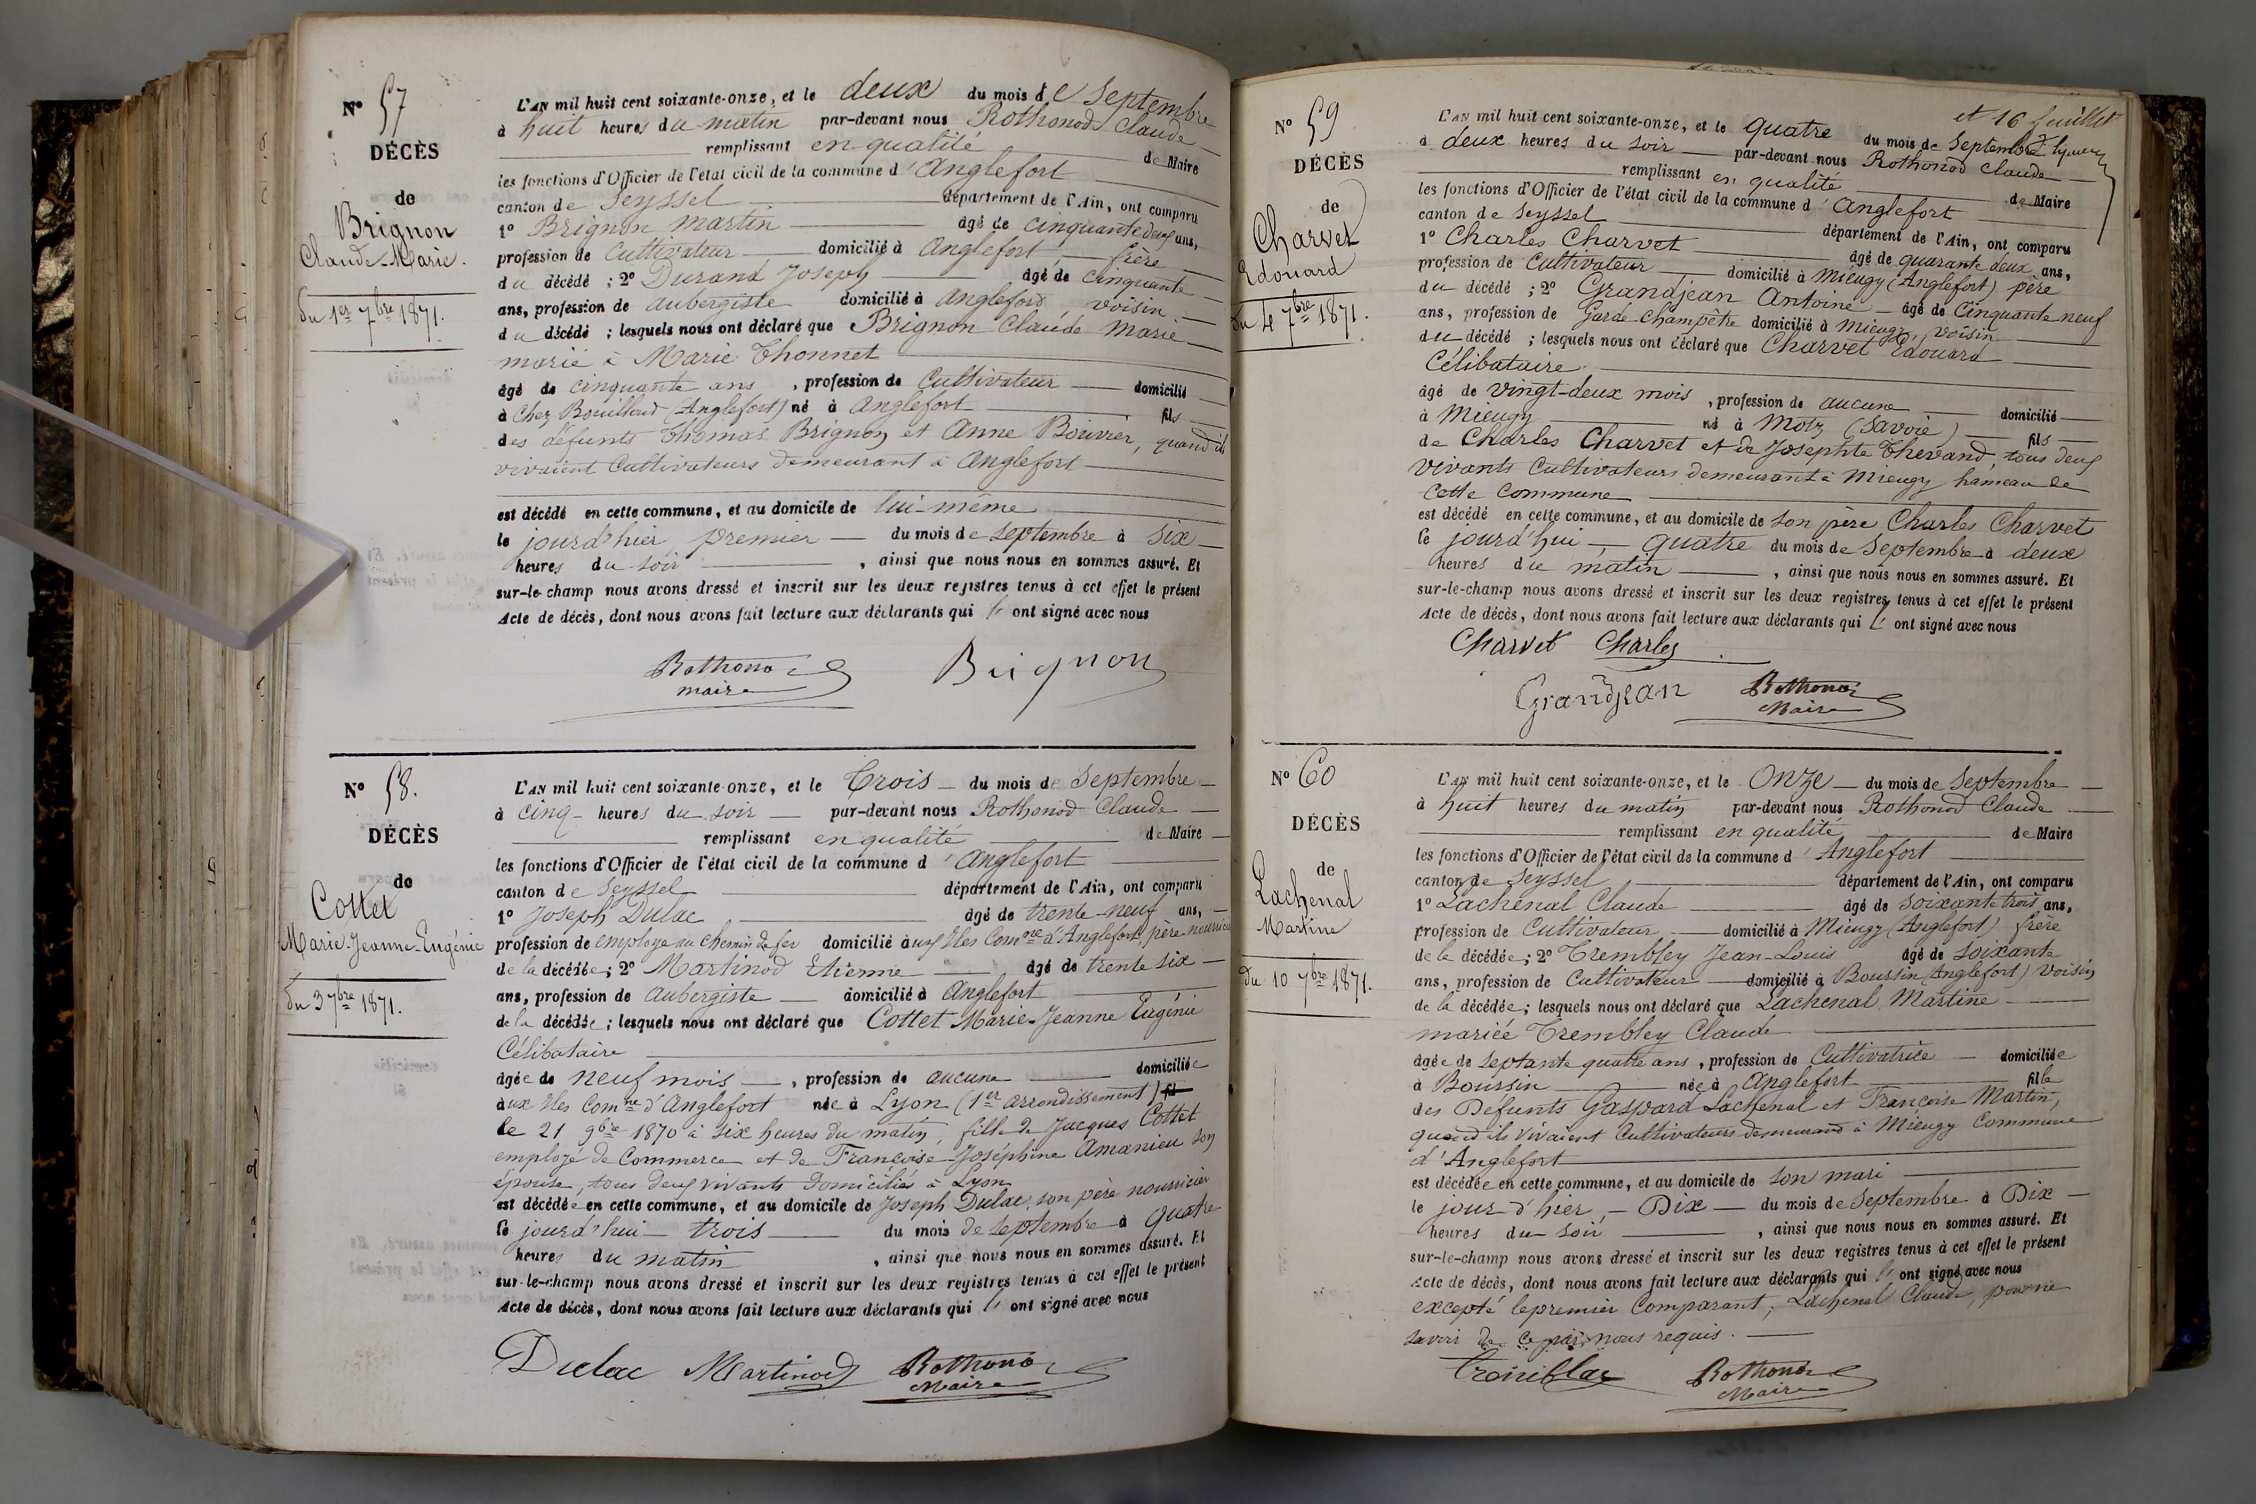 N° 57
DÉCÈS
de
Brignon
Claude-Marie.
du 1er 7bre 1871.
L'AN mil huit cent soixante-onze, et le deux du mois de Septembre
à huit heures du matin par-devant nous Rothonod Claude
remplissant en qualité de Maire
les fonctions d'Officier de l'état civil de la commune d'Anglefort
canton de Seyssel département de l'Ain, ont comparu
1° Brignon Martin âgé de cinquante deux ans,
profession de Cultivateur domicilié à Anglefort, frère
du décédé ; 2° Durand Joseph âgé de cinquante
ans, profession de aubergiste domicilié à Anglefort, voisin
du décédé ; lesquels nous ont déclaré que Brignon Claude Marie
marié à Marie Thonnet
âgé de cinquante ans, profession de Cultivateur domicilié
à Chez Bouilloud (Anglefort) né à Anglefort fils
des défunts Thomas Brignon et Anne Bouvier, quand ils
vivaient Cultivateurs demeurant à Anglefort
est décédé en cette commune, et au domicile de lui-même
le jourd'hier premier du mois de Septembre à six
heures du soir, ainsi que nous nous en sommes assuré. Et
sur-le-champ nous avons dressé et inscrit sur les deux registres tenus à cet effet le présent
Acte de décès, dont nous avons fait lecture aux déclarants qui l' ont signé avec nous
Rothonod Brignon
maire
N° 58.
DÉCÈS
de
Cottet
Marie-Jeanne-Eugénie
du 3 7bre 1871.
L'AN mil huit cent soixante-onze, et le Trois du mois de Septembre
à cinq heures du soir par-devant nous Rothonod Claude
remplissant en qualité de Maire
les fonctions d'Officier de l'état civil de la commune d'Anglefort
canton de Seyssel département de l'Ain, ont comparu
1° Joseph Dulac âgé de trente-neuf ans,
profession de employé au chemin de fer domicilié aux Iles Comne d'Anglefort, père nourricier
de la décédée ; 2° Martinod Etienne âgé de trente six
ans, profession de aubergiste domicilié à Anglefort
de la décédée ; lesquels nous ont déclaré que Cottet Marie-Jeanne Eugénie
Célibataire
âgée de neuf mois, profession de aucune domiciliée
aux Iles Comne d'Anglefort née à Lyon (1er arrondissement) fil
le 21 9bre 1870 à six heures du matin, fille de Jacques Cottet
employé de Commerce et de Françoise-Joséphine Amanieu son
épouse, tous deux vivants domiciliés à Lyon
est décédée en cette commune, et au domicile de Joseph Dulac, son père nourricier
le jourd'hui trois du mois de Septembre à quatre
heures du matin, ainsi que nous nous en sommes assuré. Et
sur-le-champ nous avons dressé et inscrit sur les deux registres tenus à cet effet le présent
Acte de décès, dont nous avons fait lecture aux déclarants qui l' ont signé avec nous
Dulac Martinod Rothonod
Maire
N° 59
DÉCÈS
de
Charvet
Edouard
du 4 7bre 1871.
et 16 Juillet
L'AN mil huit cent soixante-onze, et le quatre du mois de Septembre
à deux heures du soir par-devant nous Rothonod Claude
remplissant en qualité de Maire
les fonctions d'Officier de l'état civil de la commune d'Anglefort
canton de Seyssel département de l'Ain, ont comparu
1° Charles Charvet âgé de quarante deux ans,
profession de Cultivateur domicilié à Mieugy (Anglefort) père
du décédé ; 2° Grandjean Antoine âgé de Cinquante neuf
ans, profession de Garde-Champêtre domicilié à Mieugy, voisin
du décédé ; lesquels nous ont déclaré que Charvet Edouard
Célibataire
âgé de vingt-deux mois, profession de aucune domicilié
à Mieugy né à Motz (Savoie) fils
de Charles Charvet et de Josephte Thevand, tous deux
vivants Cultivateurs demeurant à Mieugy hameau de
cette Commune
est décédé en cette commune, et au domicile de son père Charles Charvet
le jourd'hui quatre du mois de Septembre à deux
heures du matin, ainsi que nous nous en sommes assuré. Et
sur-le-champ nous avons dressé et inscrit sur les deux registres tenus à cet effet le présent
Acte de décès, dont nous avons fait lecture aux déclarants qui l' ont signé avec nous
Charvet Charles
Grandjean Rothonod
Maire
N° 60
DÉCÈS
de
Lachenal
Martine
du 10 7bre 1871.
L'AN mil huit cent soixante-onze, et le Onze du mois de Septembre
à huit heures du matin par-devant nous Rothonod Claude
remplissant en qualité de Maire
les fonctions d'Officier de l'état civil de la commune d'Anglefort
canton de Seyssel département de l'Ain, ont comparu
1° Lachenal Claude âgé de soixante trois ans,
profession de Cultivateur domicilié à Mieugy (Anglefort) frère
de la décédée ; 2° Trembley Jean-Louis âgé de soixante
ans, profession de Cultivateur domicilié à Boursin (Anglefort) voisin
de la décédée ; lesquels nous ont déclaré que Lachenal Martine
mariée Trembley Claude
âgée de septante quatre ans, profession de Cultivatrice domiciliée
à Boursin née à Anglefort fille
des Défunts Gaspard Lachenal et Françoise Martin,
quand ils vivaient Cultivateurs demeurant à Mieugy Commune
d'Anglefort
est décédée en cette commune, et au domicile de son mari
le jour d'hier, Dix du mois de Septembre à Dix
heures du soir, ainsi que nous nous en sommes assuré. Et
sur-le-champ nous avons dressé et inscrit sur les deux registres tenus à cet effet le présent
Acte de décès, dont nous avons fait lecture aux déclarants qui l' ont signé avec nous
excepté le premier Comparant, Lachenal Claude, pour ne
savoir de ce par nous requis.
Rothonod
Maire